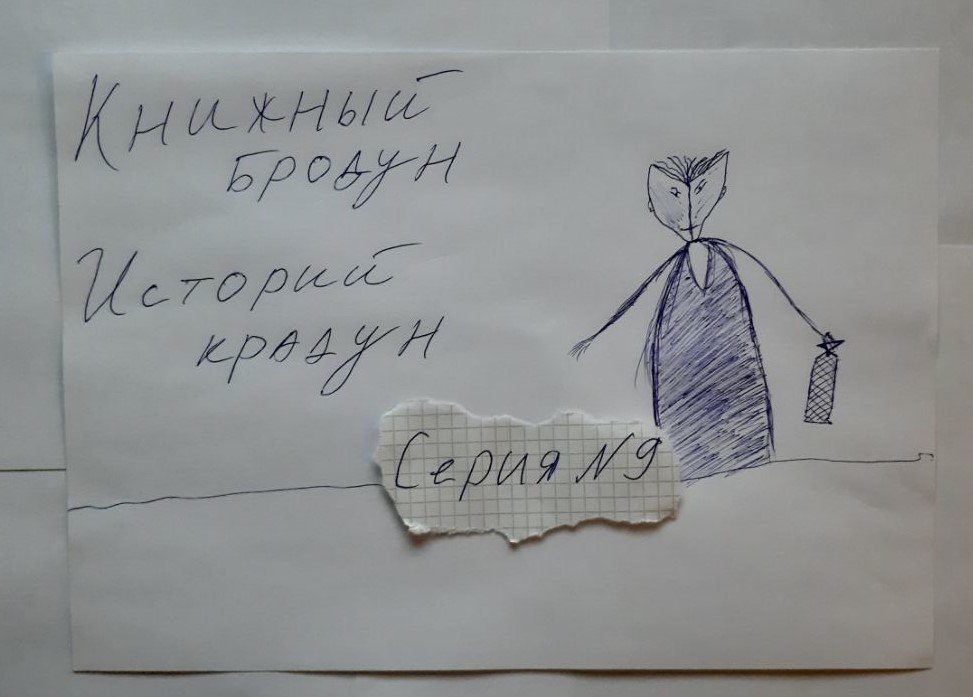 Книжный
бродун
Историй
крадун
Серия N9